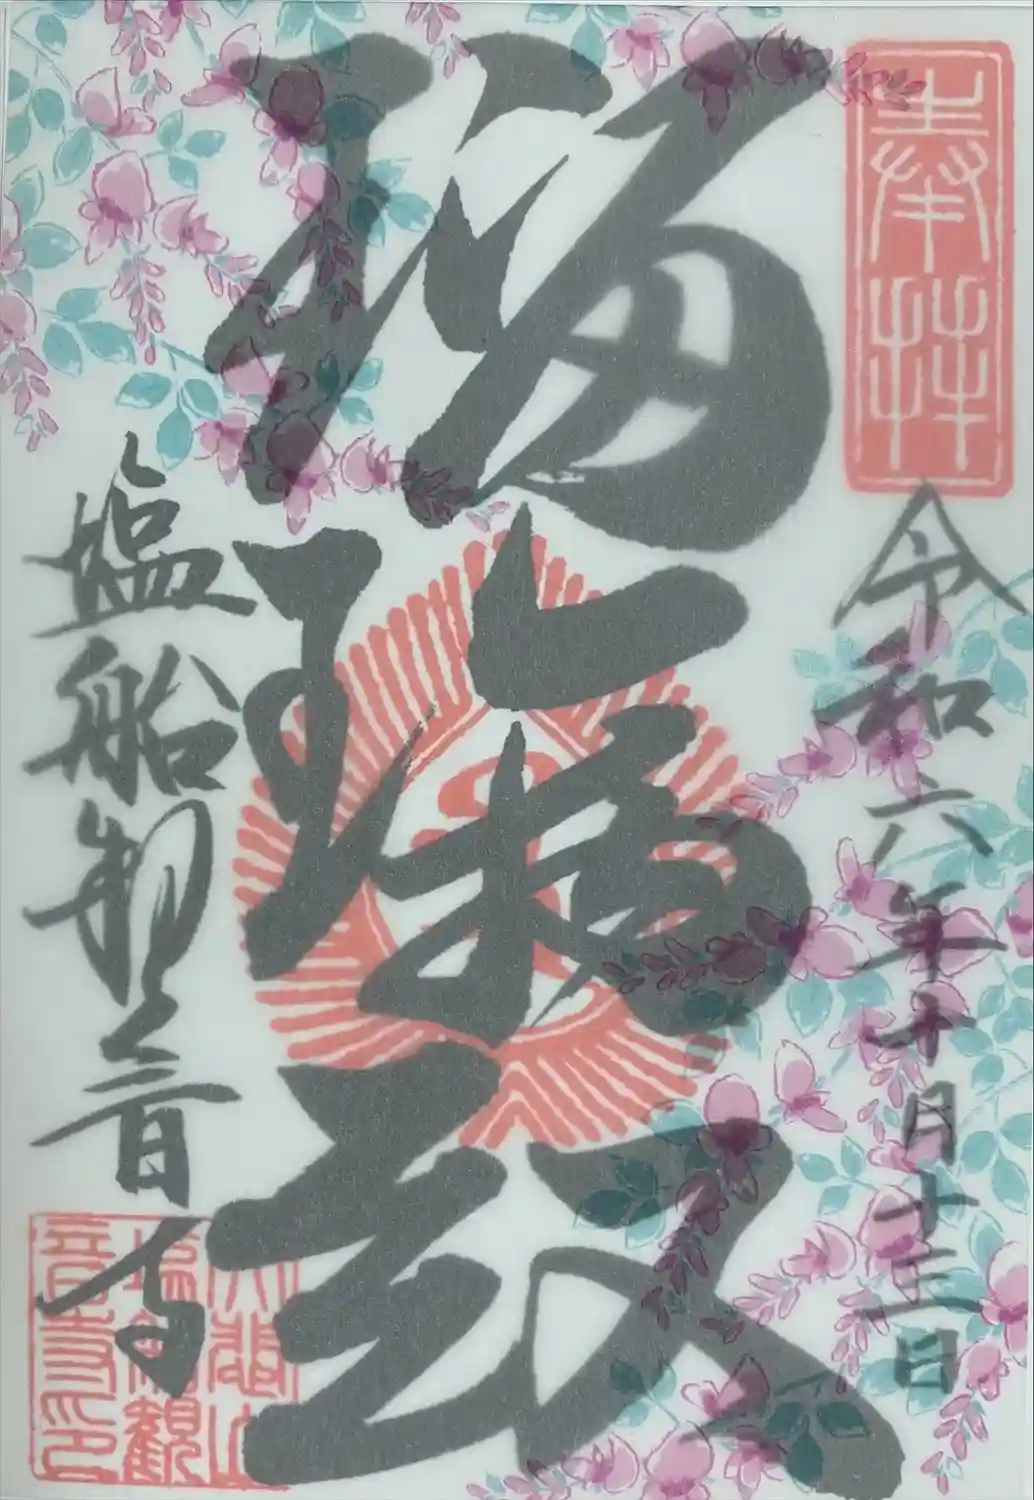 奉拝
令和六年十月十三日
瑠璃殿
塩船観音寺
大悲山
塩船観
音寺印